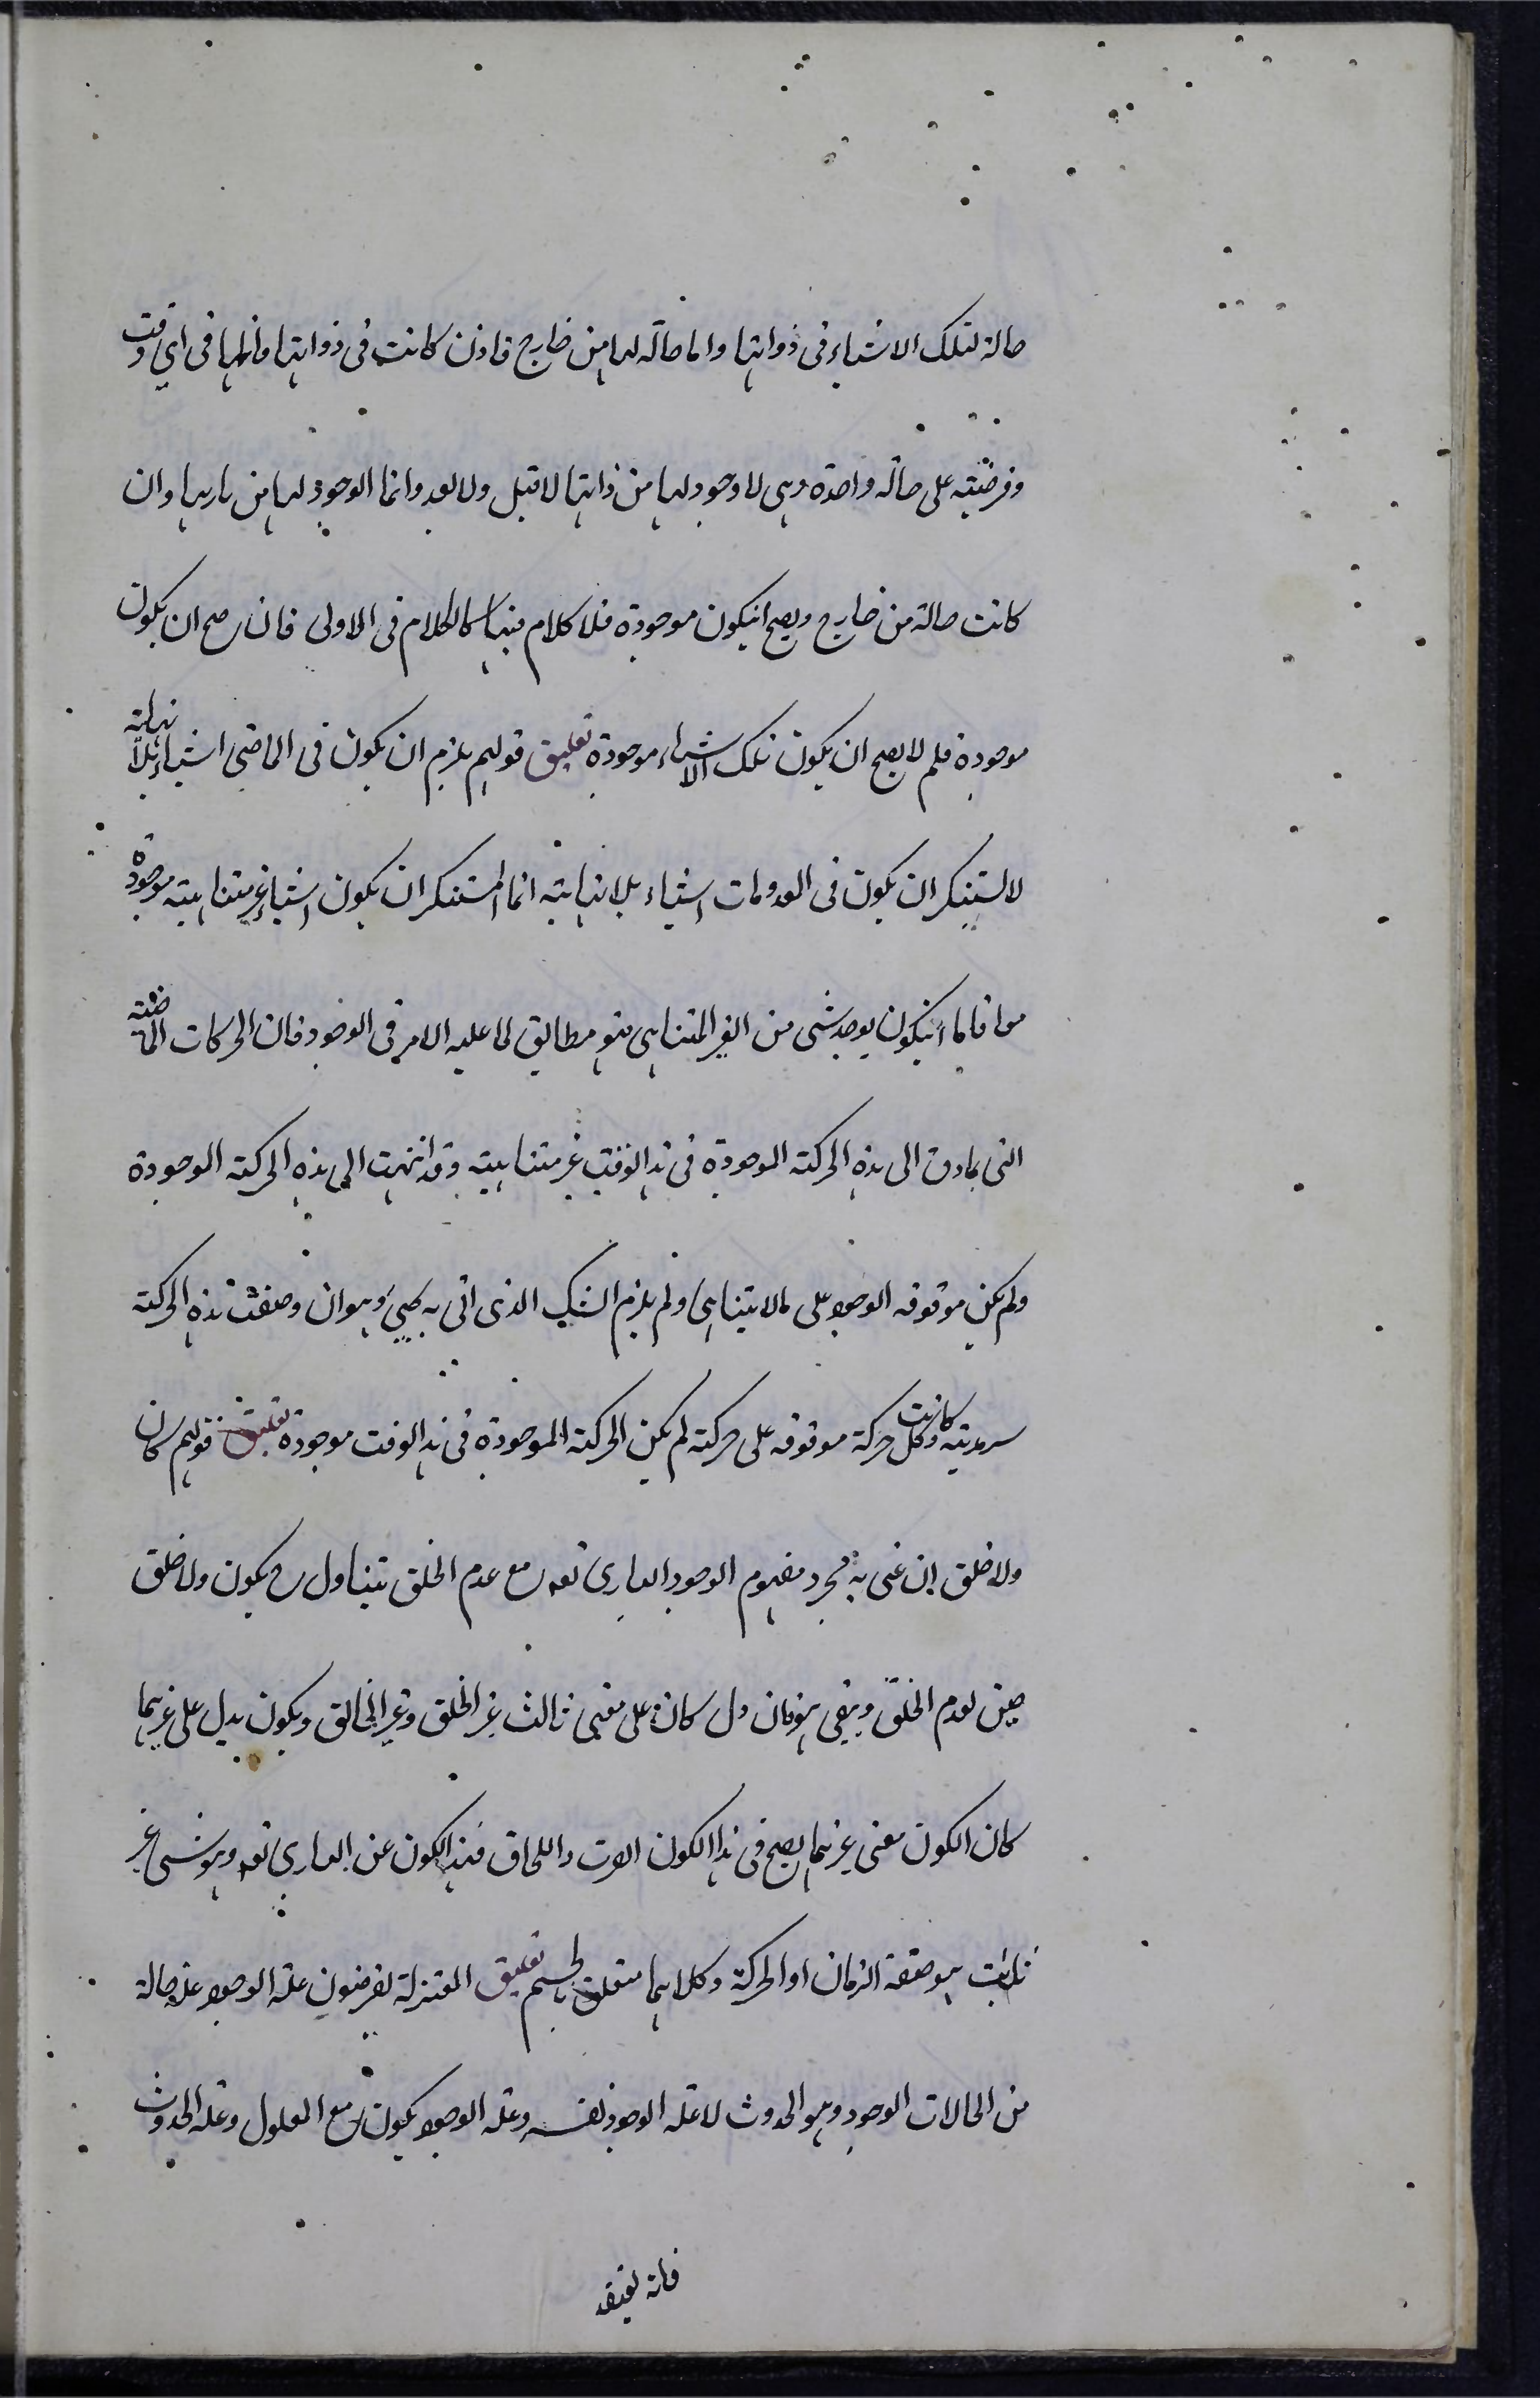 حالة لتلك الاشياء فى ذواتها واما حالة لها من خارج فاذن كانت فى ذواتها فانها فى اى وقت
وفرضته على حالة واحدة وهى لا وجود لها من ذاتها لا قبل ولا بعد وانما الوجود لها من باريها وان
كانت حالة من خارج ويصح انيكون موجودة فلا كلام فيها كالكلام فى الاولى فان صح ان يكون
موجودة فلم لا يصح ان يكون تلك الاشياء موجودة تعليق قولهم يلزم ان يكون فى الماضى اشياء بلا نهاية
لا يستنكر ان يكون فى المعدومات اشياء بلا نهاية انما المستنكر ان يكون اشياء غير متناهية موجودة
معا فاما انيكون يوجد شى من الغير المتناهى فهو مطابق لما عليه الامر فى الوجود فان الحركات الماضية
التى تمادت الى هذه الحركة الموجودة فى هذا الوقت غير متناهية وقد انتهت الى هذه الحركة الموجودة
ولم يكن موقوفه الوجود على ما لا يتناهى ولم يلزم الشك الذى اتى به يحيى وهو ان وضعت هذه الحركة
سرمدية وكانت كل حركة موقوفه على حركة لم يكن الحركة الموجودة فى هذا الوقت موجودة تعليق قولهم كان
ولا خلق ان عنى به مجرد مفهوم الوجود البارى تعه مع عدم الخلق يتناول ح يكون ولا خلق
حين لعدم الخلق وبقى هو فان دل كان على معنى ثالث غير الخلق وغير الخالق ويكون يدل على غيرهما
كان الكون معنى غيرهما يصح فى هذا الكون واللحاق فهذا الكون عن البارى تعه وهو شى غير
ثابت هو صفة الزمان او الحركة وكلاهما متعلق بالجسم تعليق المعتزلة يفرضون علة الوجود علة حالة
من الحالات الوجود وهو الحدوث لا علة الوجود نفسه وعلة الوجود يكون مع المعلول وعلة الحدوث
فانه